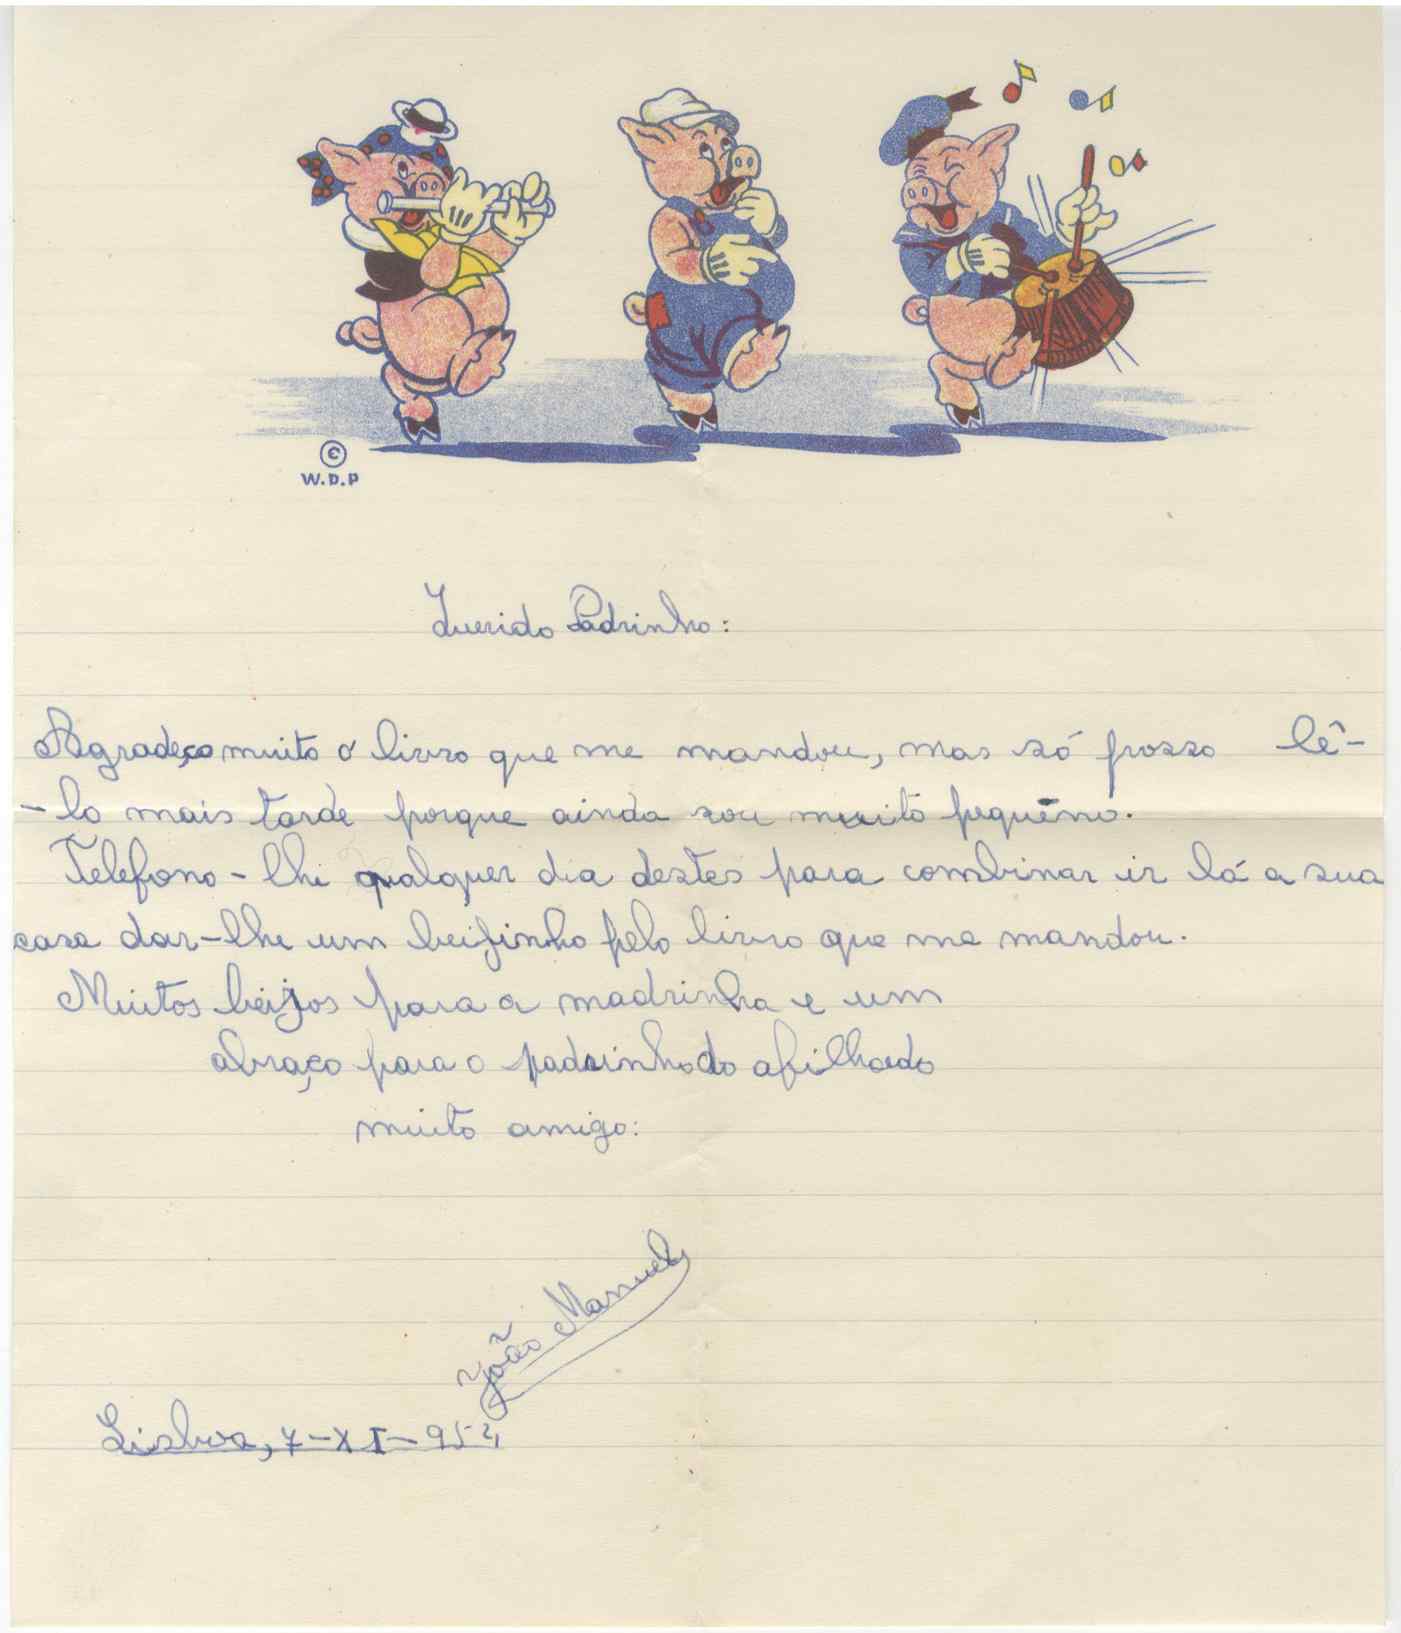 © W.D.P
Querido Padrinho:
Agradeço muito o livro que me mandou, mas só posso lê-
-lo mais tarde porque ainda sou muito pequeno.
Telefono-lhe qualquer dia destes para combinar ir lá a sua
casa dar-lhe um beijinho pelo livro que me mandou.
Muitos beijos para a madrinha e um
abraço para o padrinho do afilhado
muito amigo:
João Manuel
Lisboa, 7-XI-952